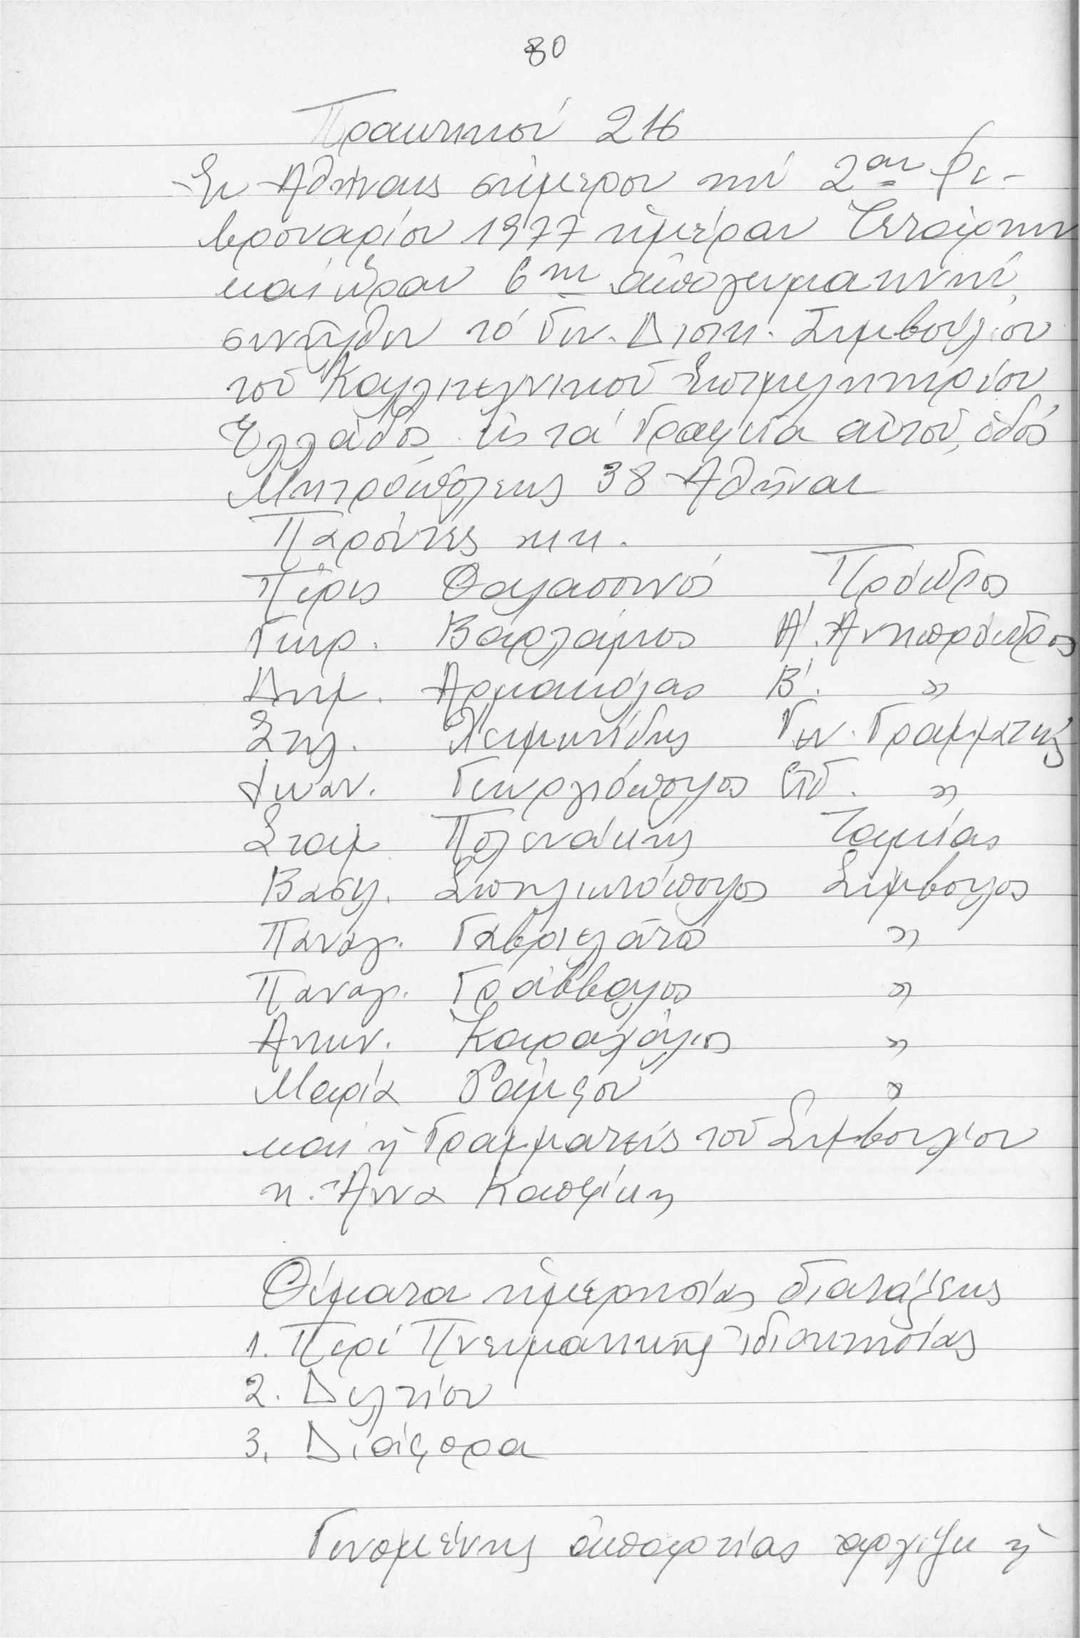 80
Πρακτικόν 216
Ἐν Ἀθήναις σήμερον τήν 2αν Φε-
βρουαρίου 1977 ἡμέραν Τετάρτην
καί ὥραν 6ην ἀπογευματινήν,
συνῆλθεν τό Γεν. Διοικ. Συμβούλιον
τοῦ Καλλιτεχνικοῦ Ἐπιμελητηρίου
Ἑλλάδος εἰς τά Γραφεῖα αὐτοῦ, ὁδός
Μητροπόλεως 38 Ἀθῆναι
Παρόντες κ.κ.
Πέρις Θαλασσινός Πρόεδρος
Γεωρ. Βαρλάμος Α΄. Ἀντιπρόεδρος
Δημ. Ἀρμακόλας Β΄. "
Στηλ. Γεν. Γραμματεύς
Ἰωαν. Γεωργιόπουλος Εἰδ. "
Σταμ Πολενάκης Ταμίας
Βασιλ. Σπηλιωτόπουλος Σύμβουλος
Παναγ. Γαβριελάτο "
Παναγ. Γράββαλος "
Ἀντων. Καραχάλιος "
Μαρία Ράμφου "
καί ἡ Γραμματεύς τοῦ Συμβουλίου
κ. Ἄννα Καψίκη
Θέματα ἡμερησίας διατάξεως
1. Περί Πνευματικῆς Ἰδιοκτησίας
2. Δελτίον
3. Διάφορα
Γενομένης ἀπαρτίας ἀρχίζει ἡ